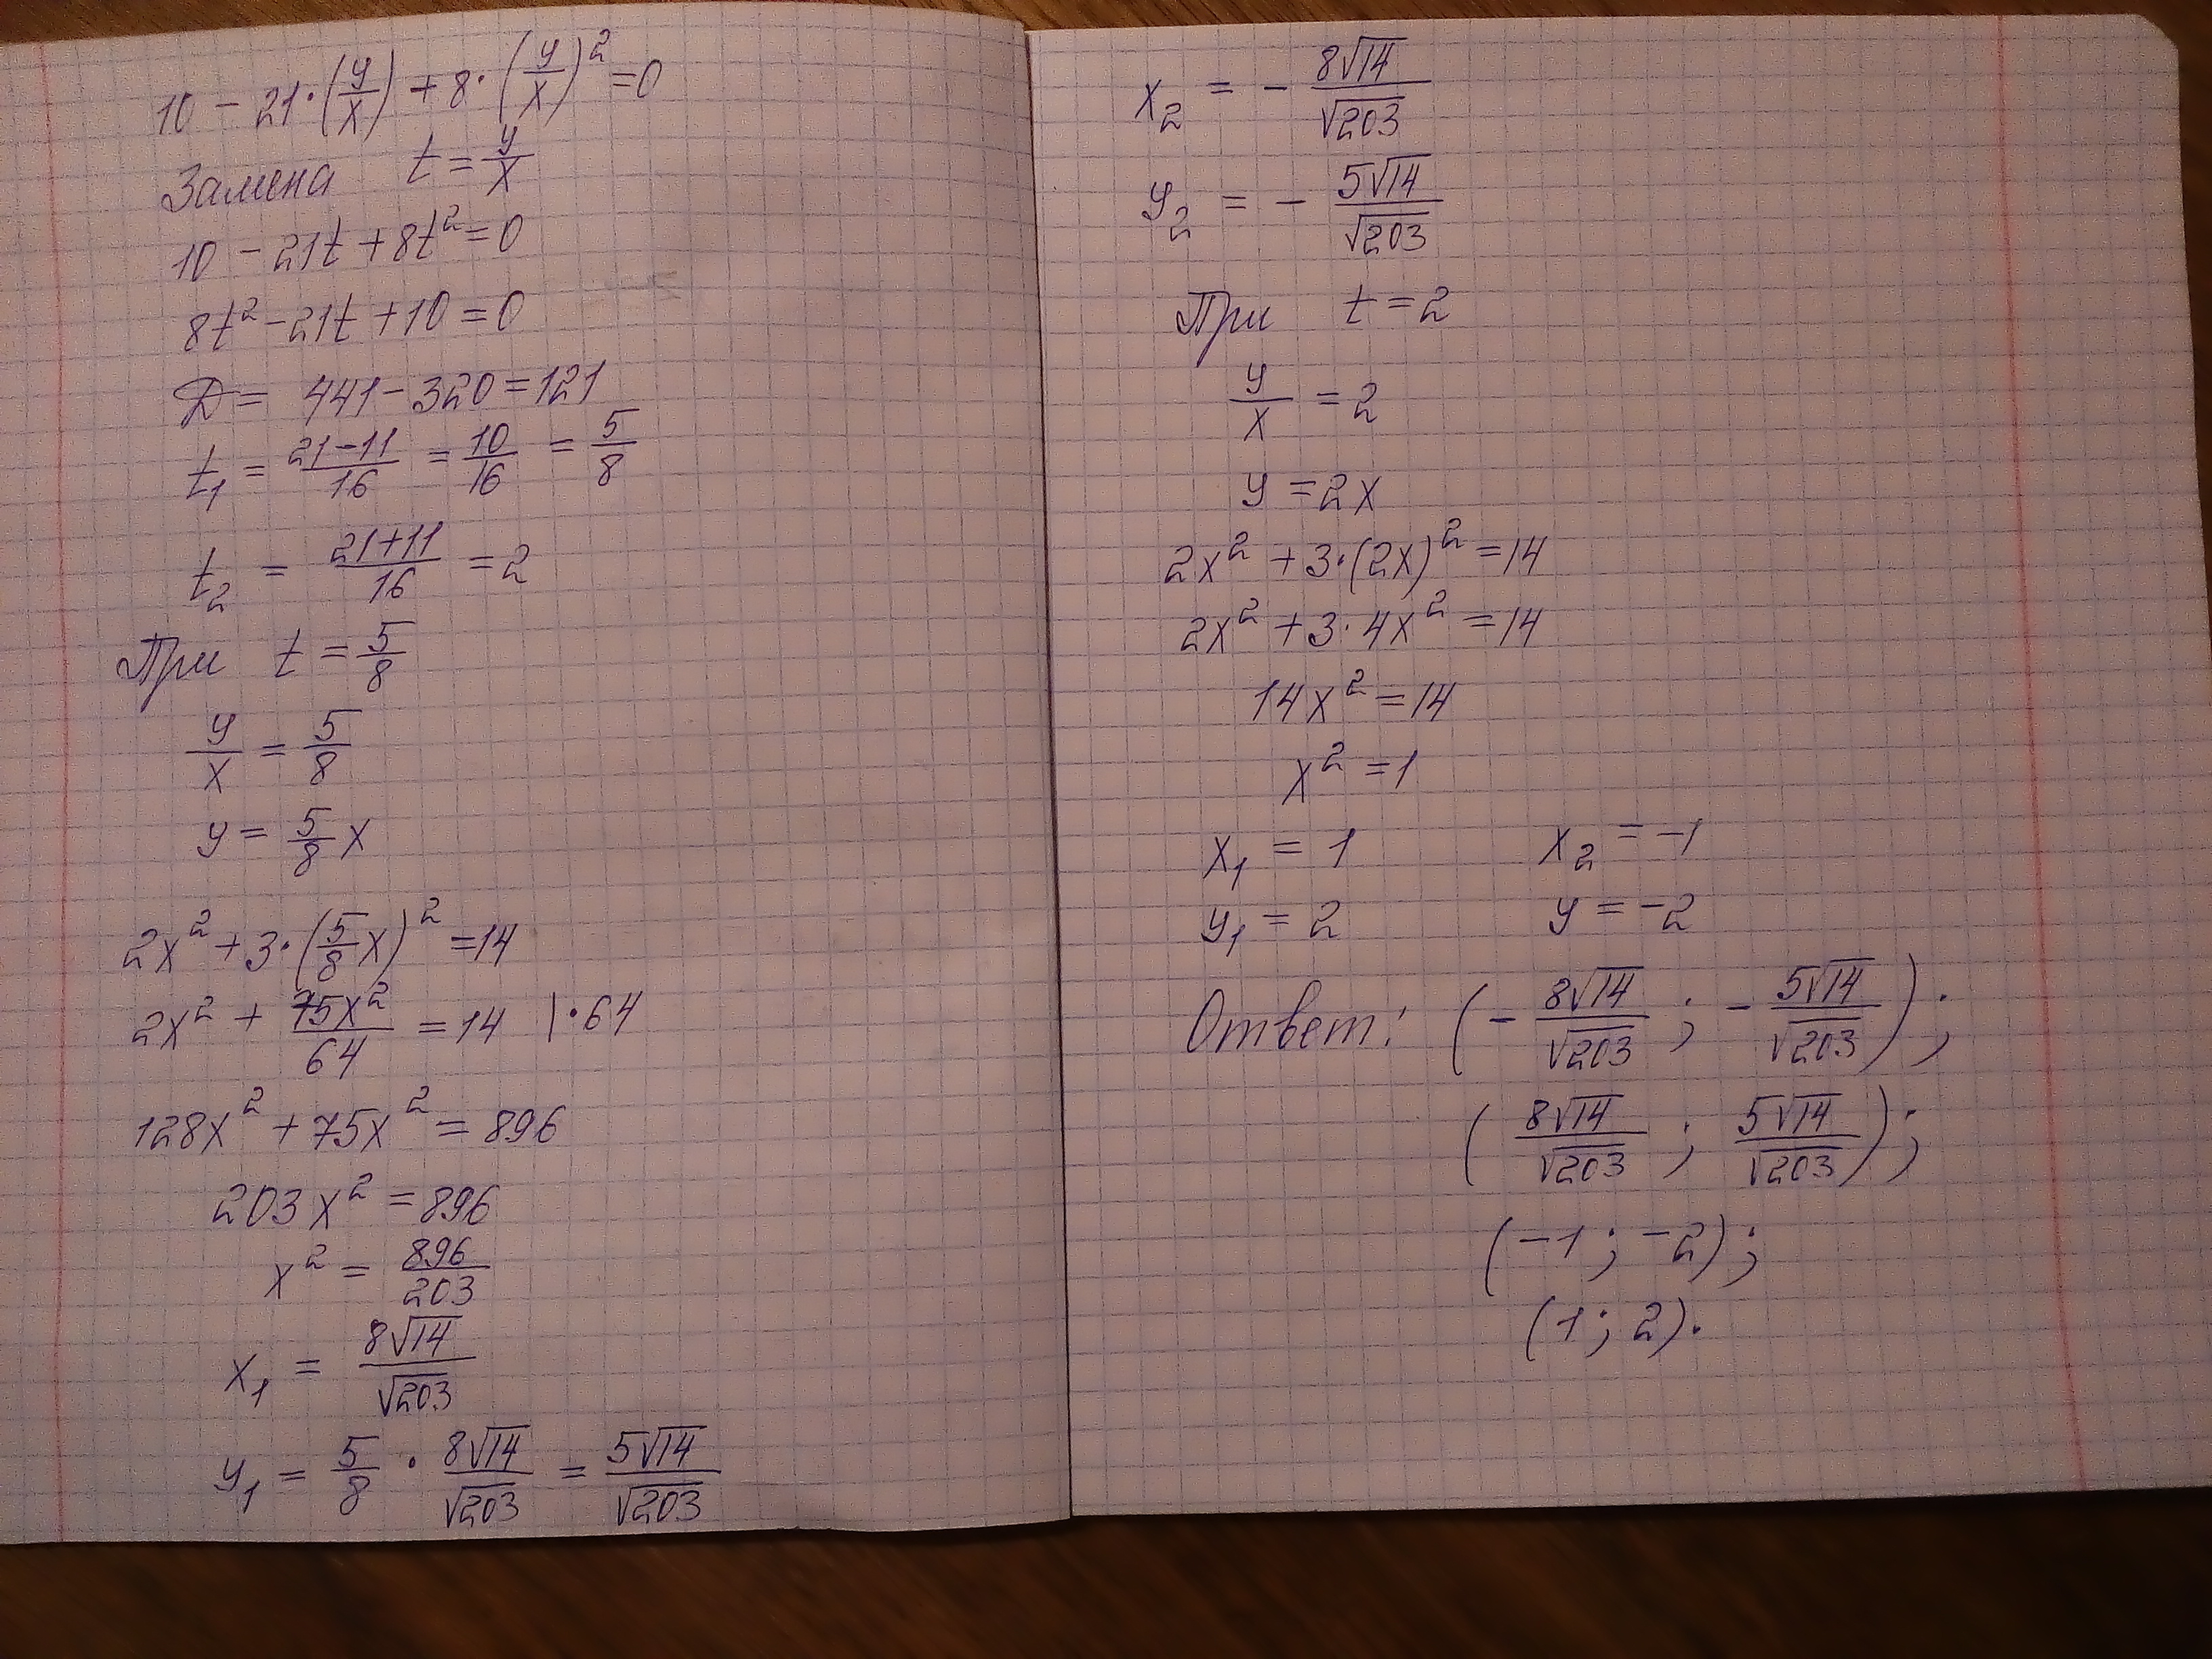 10 - 21·(y/x) + 8·(y/x)² = 0
Замена t = y/x
10 - 21t + 8t² = 0
8t² - 21t + 10 = 0
Д = 441 - 320 = 121
t₁ = (21-11)/16 = 10/16 = 5/8
t₂ = (21+11)/16 = 2
При t = 5/8
y/x = 5/8
y = 5/8 x
2x² + 3·(5/8 x)² = 14
2x² + 75x²/64 = 14 |·64
128x² + 75x² = 896
203x² = 896
x² = 896/203
x₁ = 8√14/√203
y₁ = 5/8 · 8√14/√203 = 5√14/√203
x₂ = - 8√14/√203
y₂ = - 5√14/√203
При t = 2
y/x = 2
y = 2x
2x² + 3·(2x)² = 14
2x² + 3·4x² = 14
14x² = 14
x² = 1
x₁ = 1 x₂ = -1
y₁ = 2 y = -2
Ответ: (- 8√14/√203 ; - 5√14/√203);
(8√14/√203 ; 5√14/√203);
(-1 ; -2);
(1 ; 2).